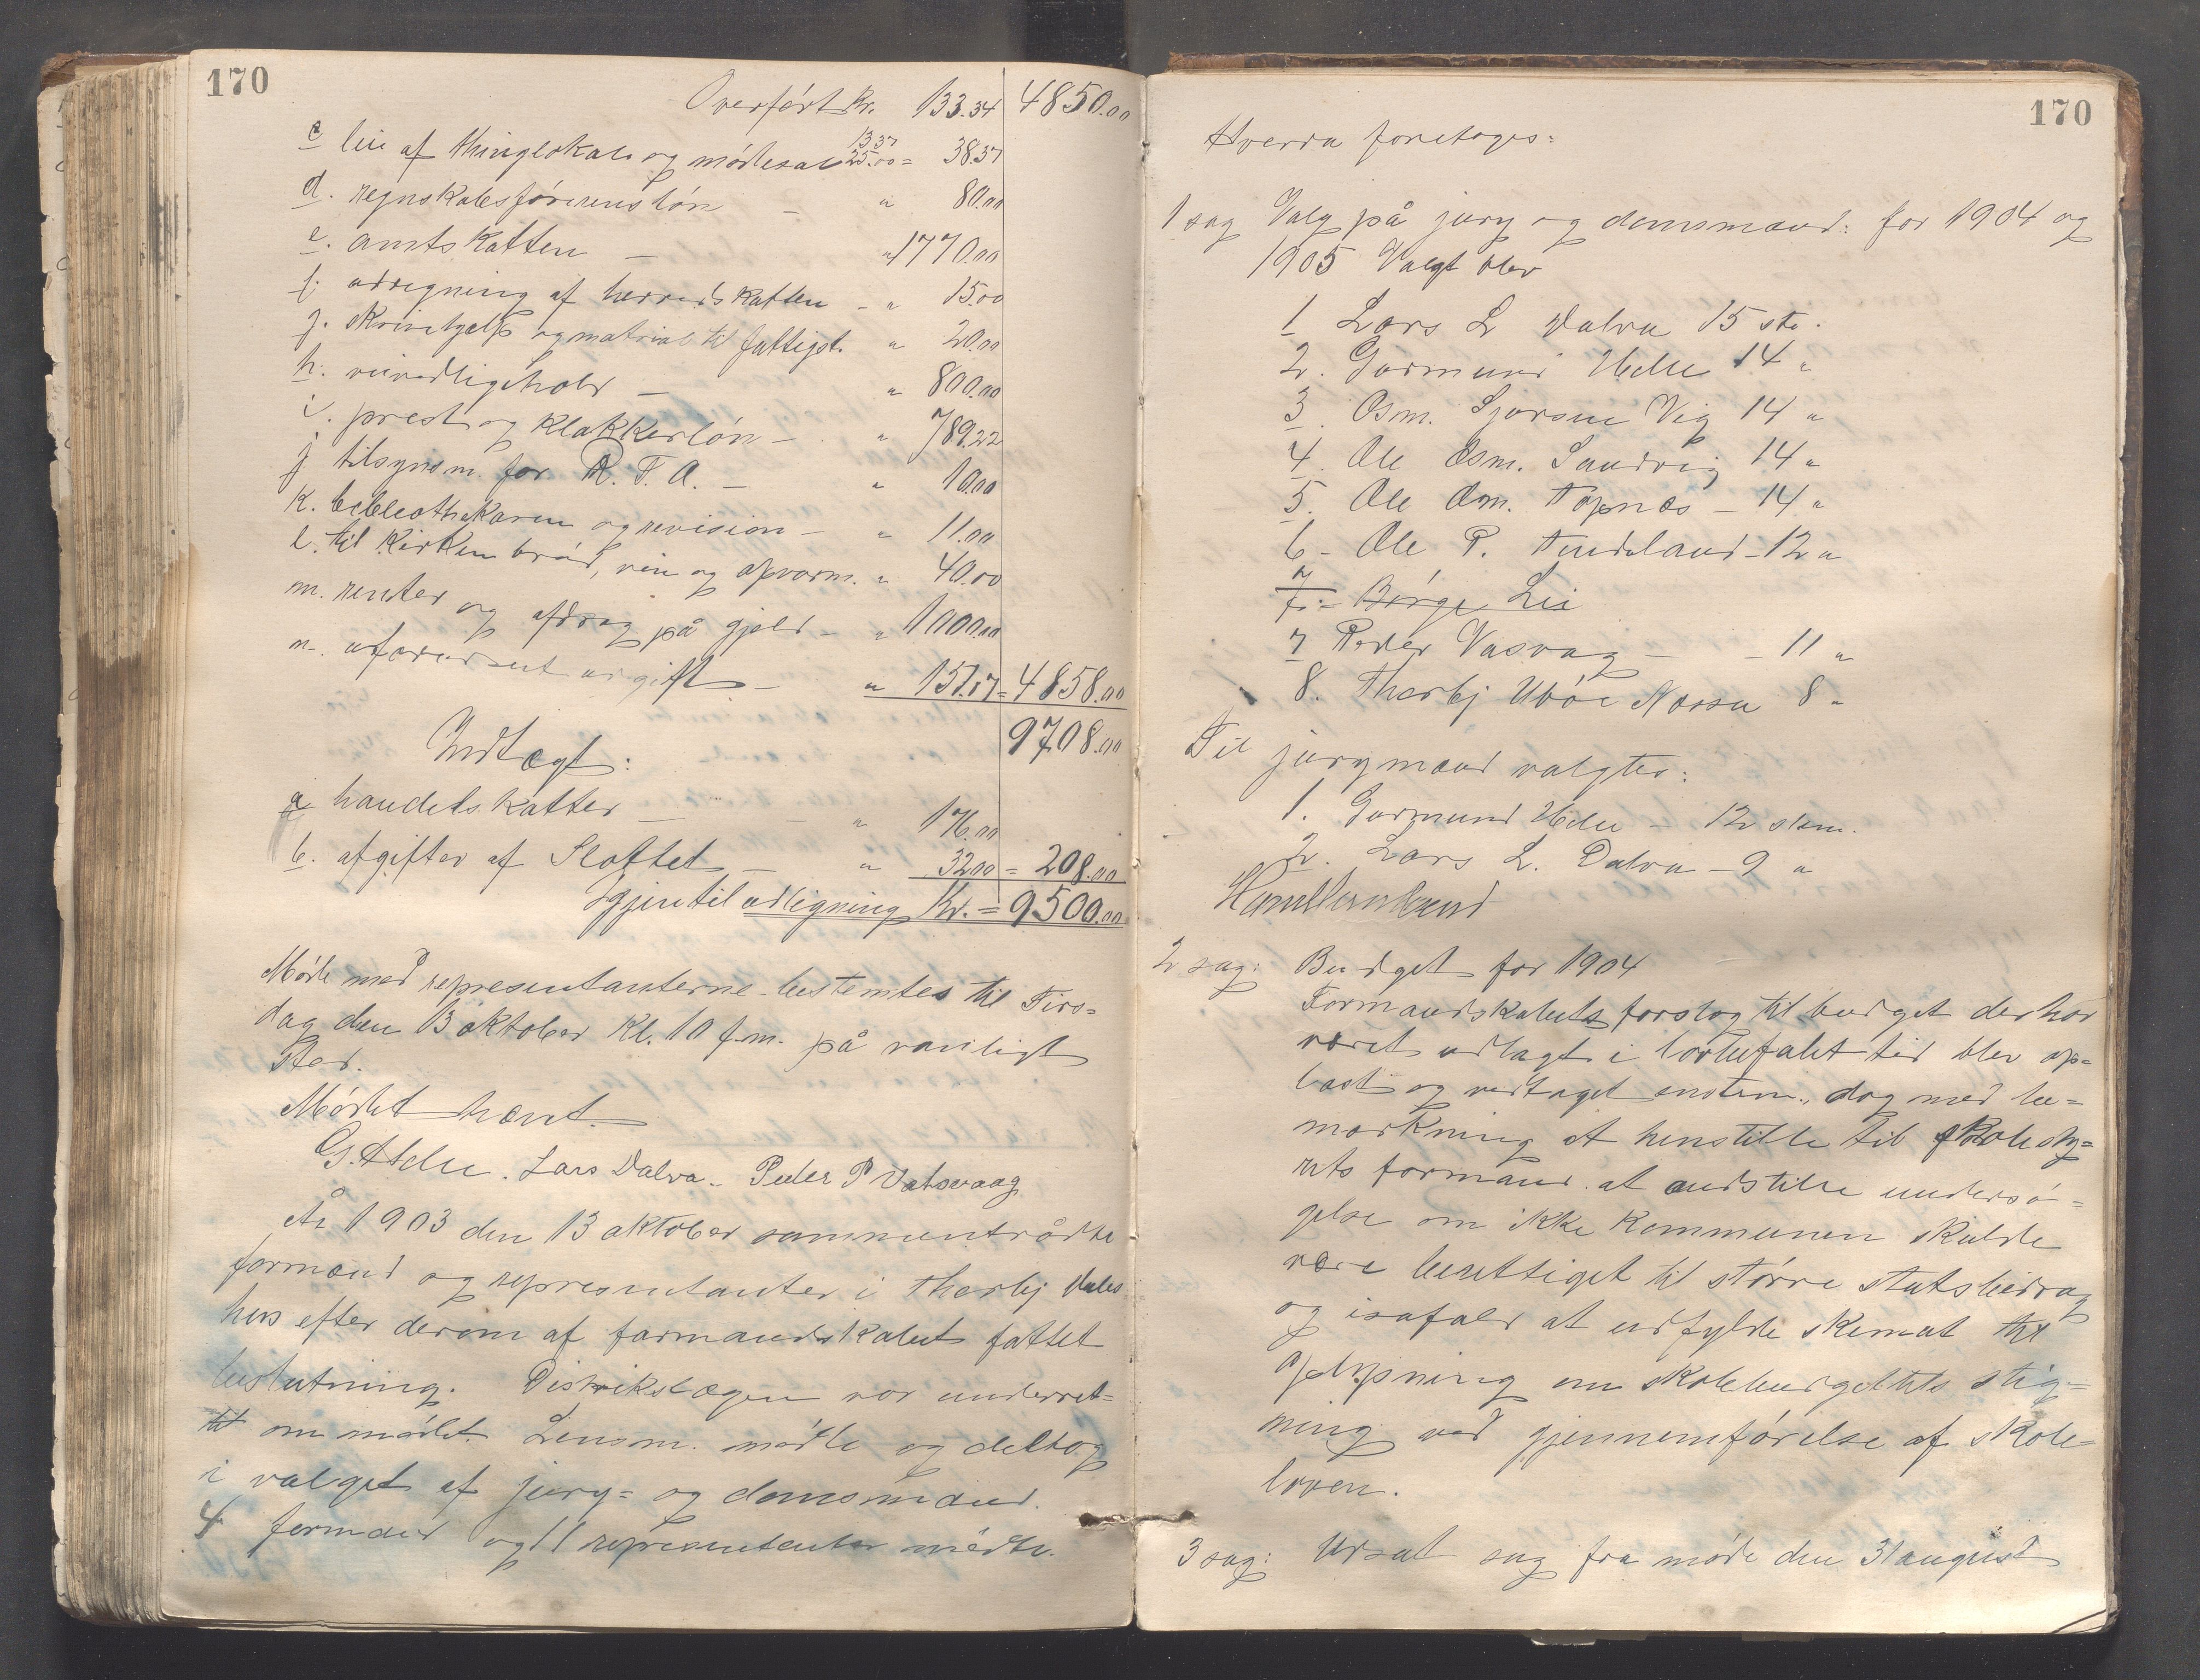 170
Overført Kr. 133.34 4850.00
c leie af thinglokale og mødesal 13.37 25.00 = 38.37
d. regnskabsførerens løn — " 80.00
e. amtskatten — " 1770.00
f. udregning af herredskatten — " 15.00
g. skrivehjælp og matrial til fattigst. " 20.00
h. veivedligehold — " 800.00
i. prest og klokkerløn — " 789.22
j tilsynsm. for R. T. A. — " 10.00
k. bibliothekaren og revision — " 11.00
l. til kirken brød, vin og opvarm. " 40.00
m. renter og afdrag på gjeld — " 1000.00
n. uforudseet udgift — " 151.07 = 4858.00
9708.00
Indtægt:
a handelskatter — — " 176.00
b. afgifter af Slottet — " 32.00 = 208.00
Igjen til udligning Kr. = 9500.00
Møde med representanterne bestemtes til Tirs=
dag den 13 oktober kl. 10 f.m. på vanligt
sted.
Mødet hævt.
G. Helle. Lars Dalva. Peder P Vatsvaag
År 1903 den 13 oktober sammentrådte
formænd og representanter i Thorbj Dales
hus efter derom af formandskabet fattet
beslutning. Distrikslægen var underret-
tet om mødet. Lensm. mødte og deltog
i valget af jury= og domsmænd.
4 formænd og 11 representanter mødte.
170
Hvorda foretoges:
1 sag Valg på jury og domsmænd: for 1904 og
1905 Valgt blev
1 Lars L Dalva 15 ste.
2. Gormund Helle 14 "
3. Osm. Sjursen Vig 14 "
4. Ole Osm. Sandvig 14 "
5. Ole Osm. Tøpnes — 14 "
6 - Ole P. Tindeland - 12 "
7 - Børge Lie
7 Peder Vasvag — — 11 "
8. Thorbj Ubøe Næssa 8 "
Til jurymænd valgtes:
1. Gormund Helle — 12 stem.
2. Lars L. Dalva - 9 "
2 sag: Budget for 1904
Formandskabets forslag til budget der har
været udlagt i lovbefalet tid blev op=
læst og vedtaget enstem., dog med be=
mærkning at henstille til skolesty=
rets formand at andstille undersø=
gelse om ikke kommunen skulde
være berettiget til større statsbidrag
og isåfald at udfylde skemat til
oplysning om skolebudgettets stig=
ning ved gjennemførelse af skole-
loven.
3 sag: Udsat sag fra møde den 31 august